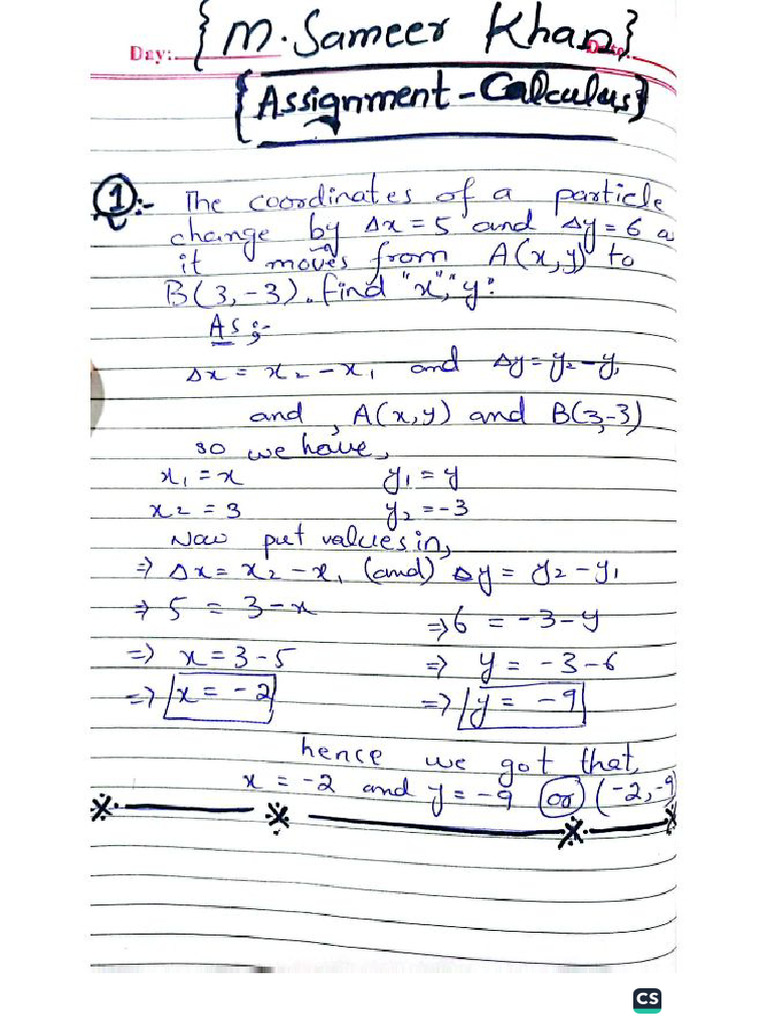 {M. Sameer Khan}
Day: Date:
{Assignment - Calculus}
1:- The coordinates of a particle
change by Δx = 5 and Δy = 6 a
it moves from A(x,y) to
B(3,-3). find "x", "y":
As:-
Δx = x₂ - x₁ and Δy = y₂ - y₁
and, A(x,y) and B(3,-3)
so we have,
x₁ = x y₁ = y
x₂ = 3 y₂ = -3
Now put values in,
⇒ Δx = x₂ - x₁ (and) Δy = y₂ - y₁
⇒ 5 = 3 - x ⇒ 6 = -3 - y
⇒ x = 3 - 5 ⇒ y = -3 - 6
⇒ x = -2 ⇒ y = -9
hence we got that,
x = -2 and y = -9 (or) (-2,-9)
CS